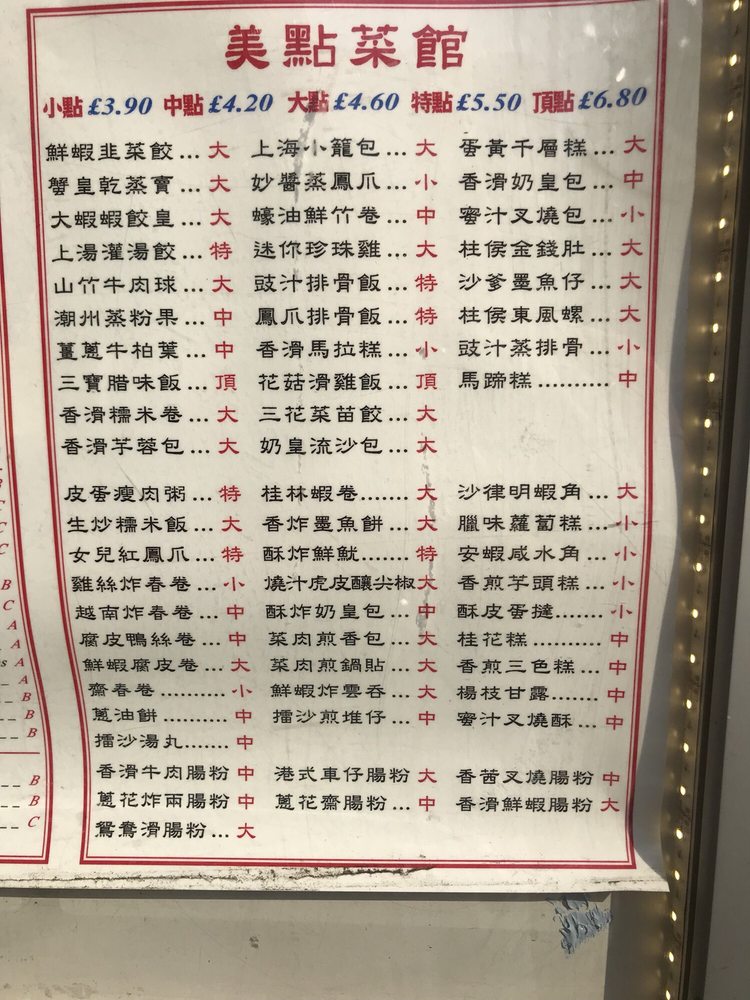 美點菜館
小點£3.90 中點£4.20 大點£4.60 特點£5.50 頂點£6.80
鮮蝦韭菜餃...大 上海小籠包...大 蛋黃千層糕...大
蟹皇乾蒸賣...大 妙醬蒸鳳爪...小 香滑奶皇包...中
大蝦蝦餃皇...大 蠔油鮮竹卷...中 蜜汁叉燒包...小
上湯灌湯餃...特 迷你珍珠雞...大 柱侯金錢肚...大
山竹牛肉球...大 豉汁排骨飯...特 沙爹墨魚仔...大
潮州蒸粉果...中 鳳爪排骨飯...特 柱侯東風螺...大
薑蔥牛柏葉...中 香滑馬拉糕...小 豉汁蒸排骨...小
三寶腊味飯...頂 花菇滑雞飯...頂 馬蹄糕..........中
香滑糯米卷...大 三花菜苗餃...大
香滑芋蓉包...大 奶皇流沙包...大
皮蛋瘦肉粥...特 桂林蝦卷.......大 沙律明蝦角...大
生炒糯米飯...大 香炸墨魚餅...大 臘味蘿蔔糕...小
女兒紅鳳爪...特 酥炸鮮魷.......特 安蝦咸水角...小
雞絲炸春卷...小 燒汁虎皮釀尖椒大 香煎芋頭糕...小
越南炸春卷...中 酥炸奶皇包...中 酥皮蛋撻.......小
腐皮鴨絲卷...中 菜肉煎香包...大 桂花糕..........中
鮮蝦腐皮卷...大 菜肉煎鍋貼...大 香煎三色糕...中
齋春卷..........小 鮮蝦炸雲吞...大 楊枝甘露.......中
蔥油餅..........中 擂沙煎堆仔...中 蜜汁叉燒酥...中
擂沙湯丸.......中
香滑牛肉腸粉 中 港式車仔腸粉 大 香茜叉燒腸粉 中
蔥花炸兩腸粉 中 蔥花齋腸粉...中 香滑鮮蝦腸粉 大
鴛鴦滑腸粉...大
C
C
B
C
A
A
s A
A
B
B
B
B
B
C